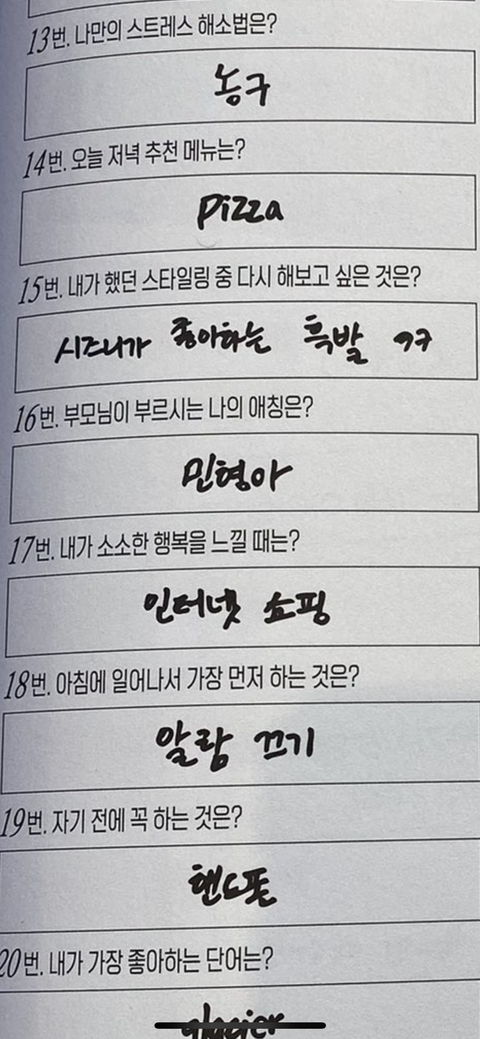 13번. 나만의 스트레스 해소법은?
농구
14번. 오늘 저녁 추천 메뉴는?
pizza
15번. 내가 했던 스타일링 중 다시 해보고 싶은 것은?
시즈니가 좋아하는 흑발 ㅋㅋ
16번. 부모님이 부르시는 나의 애칭은?
민형아
17번. 내가 소소한 행복을 느낄 때는?
인터넷 쇼핑
18번. 아침에 일어나서 가장 먼저 하는 것은?
알람 끄기
19번. 자기 전에 꼭 하는 것은?
핸드폰
20번. 내가 가장 좋아하는 단어는?
glacier